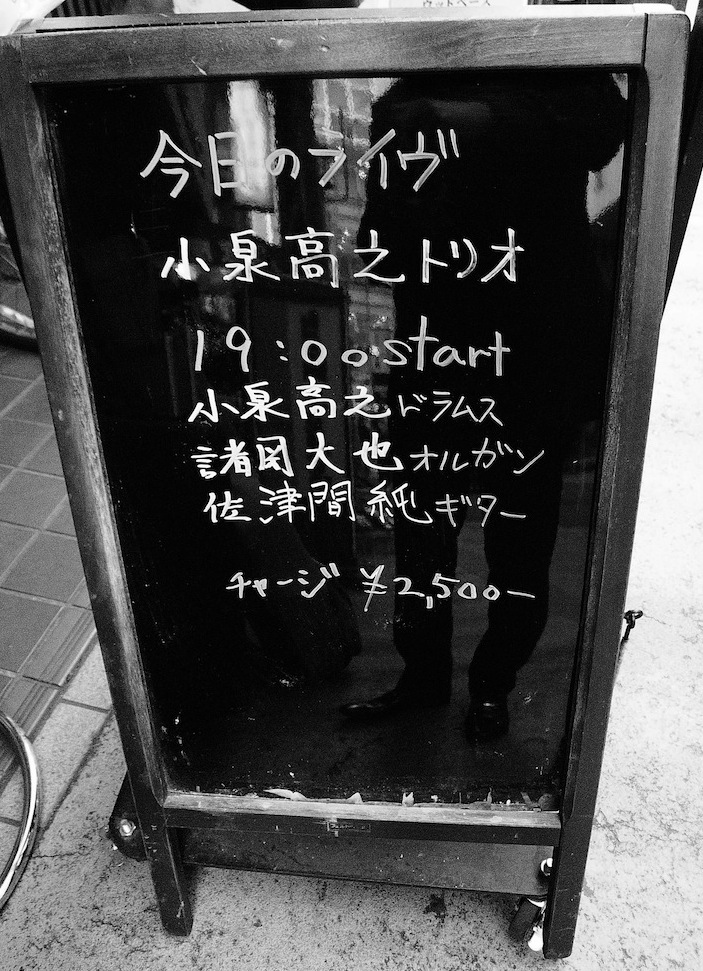 ウッドベース
今日のライヴ
小泉高之トリオ
19:00start
小泉高之ドラムス
諸岡大也オルガン
佐津間純ギター
チャージ ¥2,500ー